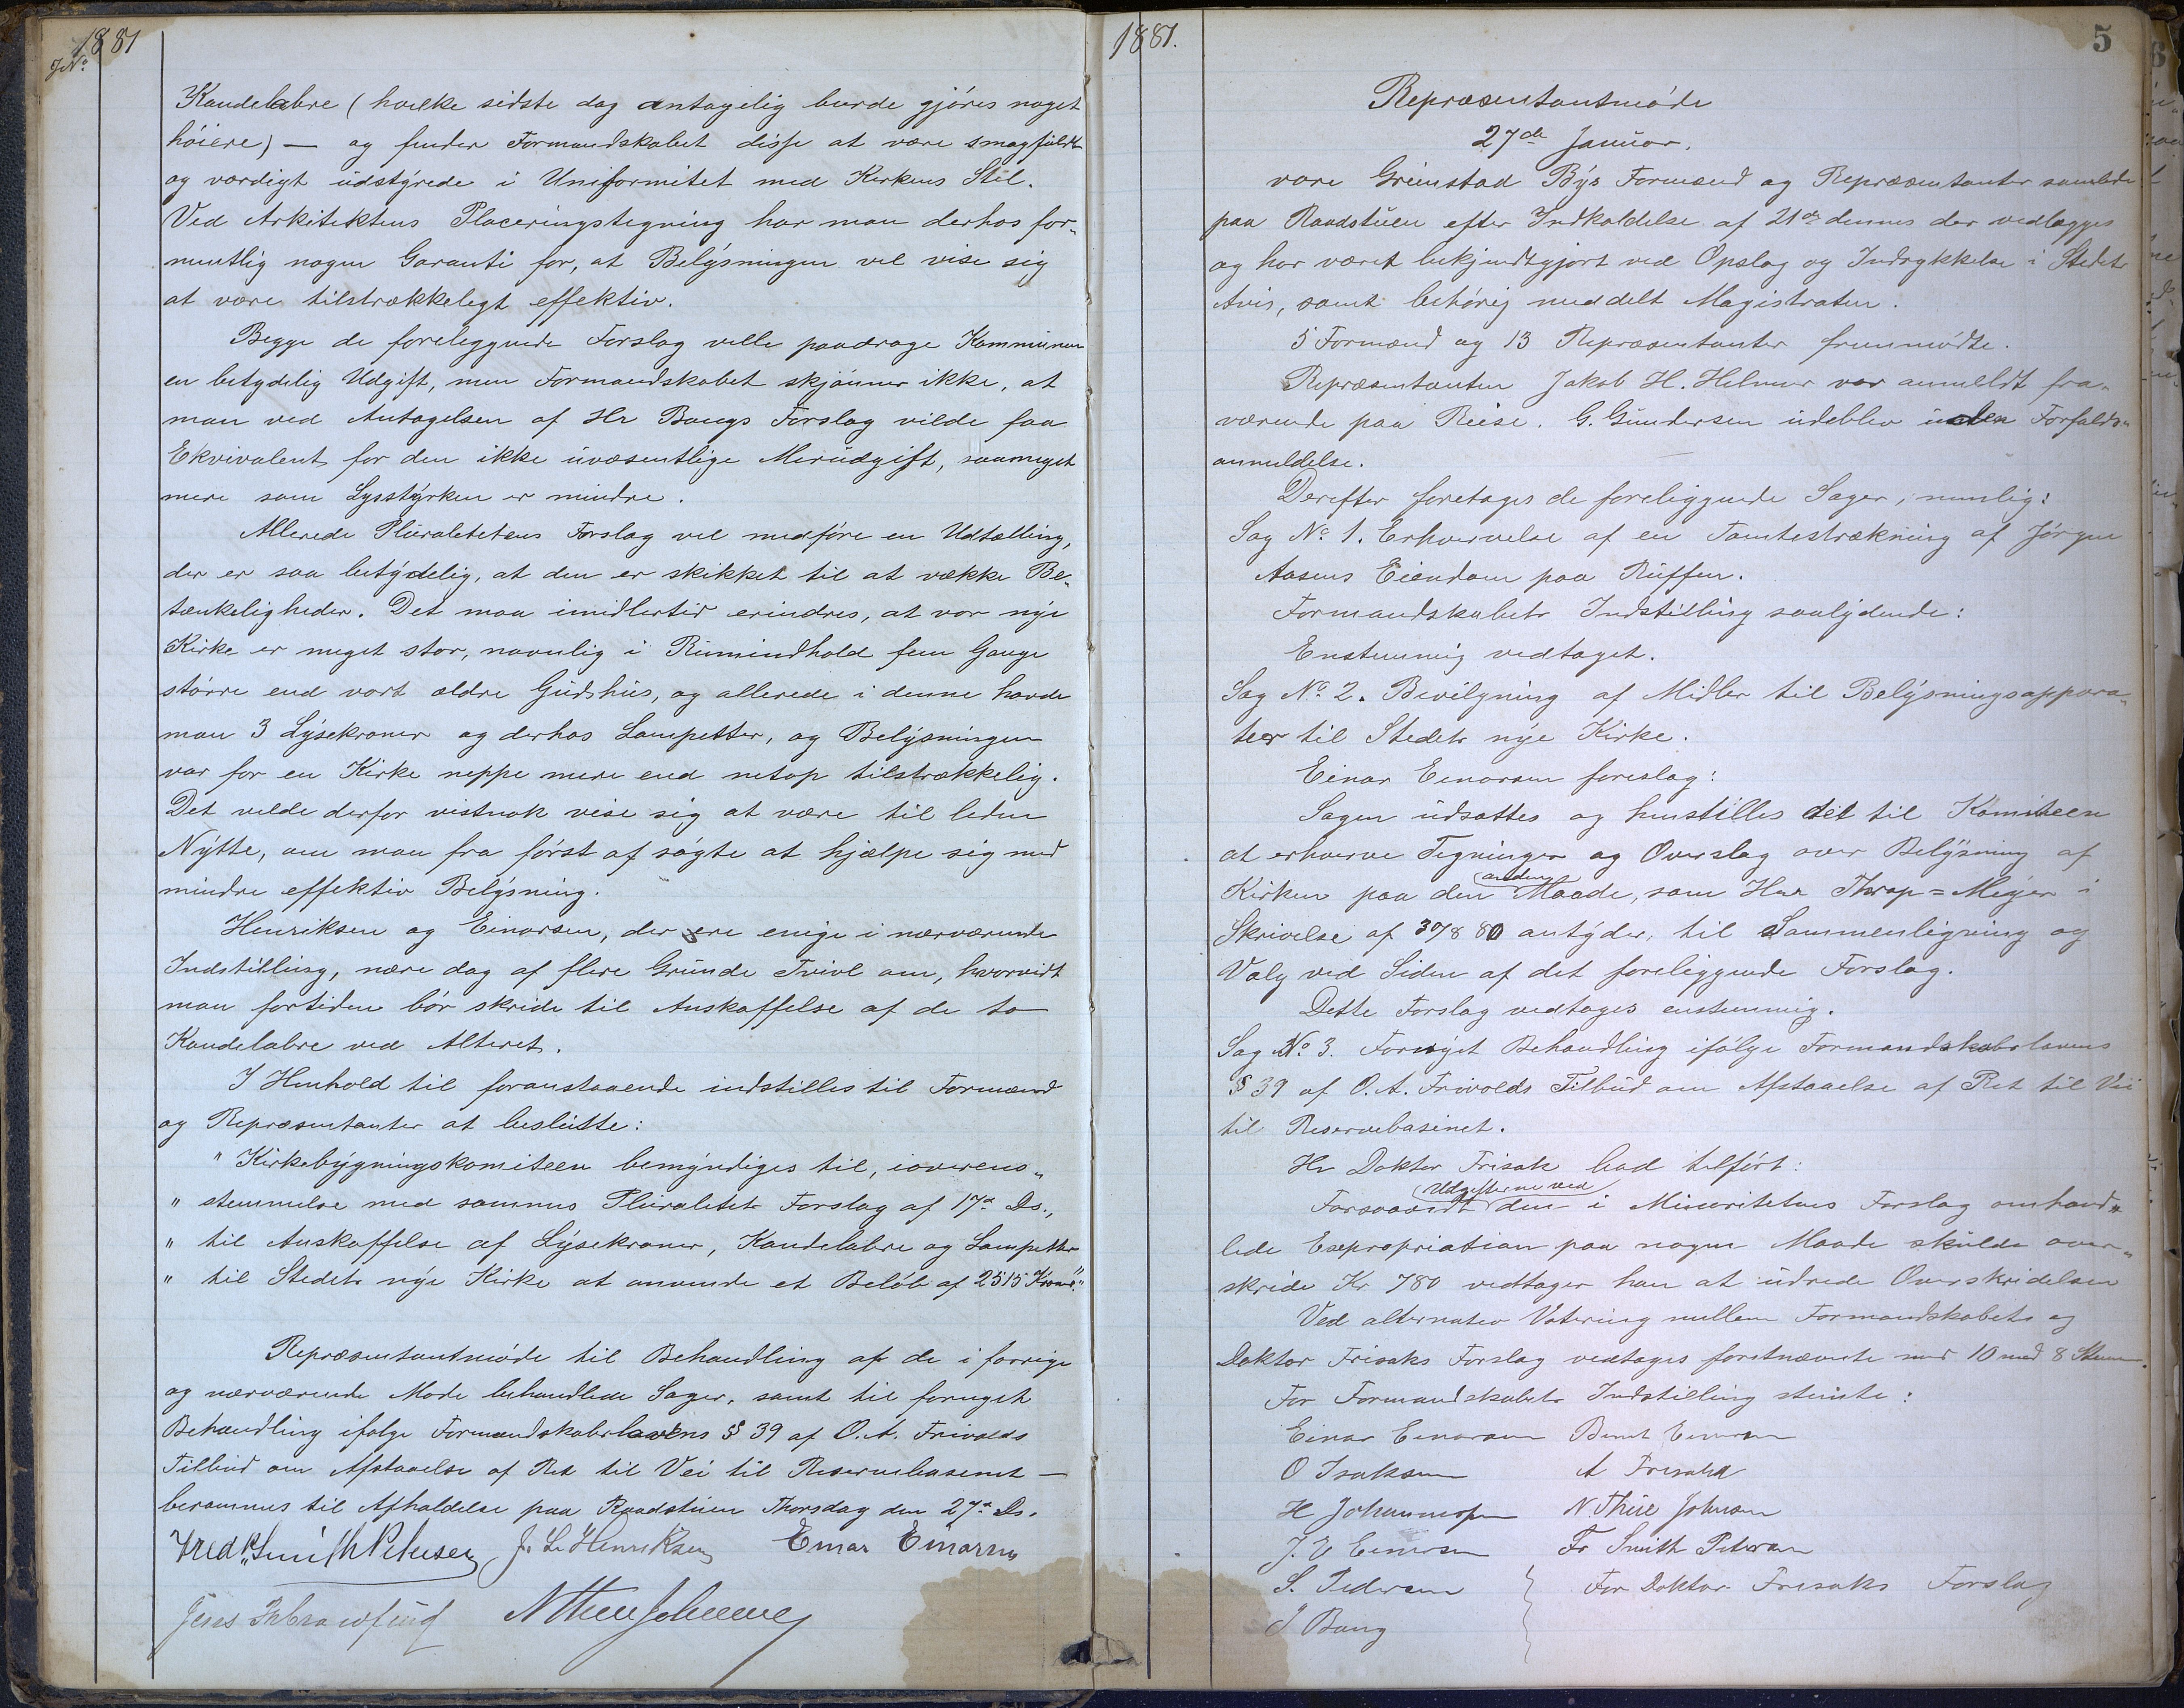 1881
No
Kandelabre (hvilke sidste dog antagelig burde gjöres noget
höiere) — og finder Formandskabet disse at være smagfuldt
og værdigt udstyrede i Uniformitet med Kirkens Stil.
Ved Arkitektens Placeringstegning har man derhos for-
mentlig nogen Garanti for, at Belysningen vil vise sig
at være tilstrækkeligt effektiv.
Begge de foreliggende Forslag ville paadrage Kommunen
en betydelig Udgift, men Formandskabet skjönner ikke, at
man ved Antagelsen af Hr Bangs Forslag vilde faa
Ekvivalent for den ikke uvæsentlige Merudgift, saameget
mere som Lysstyrken er mindre.
Allerede Pluralitetens Forslag vil medföre en Udtælling,
der er saa betydelig, at den er skikket til at vække Be-
tænkeligheder. Det maa imidlertid erindres, at vor nye
Kirke er meget stor, navnlig i Rumindhold fem Gange
större end vort ældre Gudshus, og allerede i denne havde
man 3 Lysekroner og derhos Lampetter, og Belysningen
var for en Kirke neppe mere end netop tilstrækkelig.
Det vilde derfor vistnok vise sig at være til liden
Nytte, om man fra först af sögte at hjælpe sig med
mindre effektiv Belysning.
Henriksen og Einarsen, der ere enige i nærværende
Indstilling, nære dog af flere Grunde Tvivl om, hvorvidt
man fortiden bör skride til Anskaffelse af de to
Kandelabre ved Alteret.
I Henhold til foranstaaende indstilles til Formænd
og Repræsentanter at beslutte:
" Kirkebygningskomiteen bemyndiges til, ioverens-
" stemmelse med sammes Pluralitets Forslag af 17de Ds.,
" til Anskaffelse af Lysekroner, Kandelabre og Lampetter
" til Stedets nye Kirke at anvende et Belöb af 2515 Kroner."
Repræsentantmöde til Behandling af de i forrige
og nærværende Möde behandlede Sager, samt til fornyet
Behandling ifölge Formandskabslovens § 39 af O. A. Frivolds
Tilbud om Afstaaelse af Ret til Vei til Reservebasinet —
berammes til Afholdelse paa Raadstuen Thorsdag den 27de Ds.
Fredk Smith Petersen J. L. Henriksen Einar Einarsen
Jens N Thue Johnsen
1881.
5
Repræsentantmöde
27de Januar.
vare Grimstad Bys Formænd og Repræsentanter samlede
paa Raadstuen efter Indkaldelse af 21de dennes der vedlægges
og har været bekjendtgjort ved Opslag og Indrykkelse i Stedets
Avis, samt behörig meddelt Magistraten.
5 Formænd og 13 Repræsentanter fremmödte.
Repræsentanten Jakob H. Helmer var anmeldt fra-
værende paa Reise. G. Gundersen udeblev uden Forfalds-
anmeldelse.
Derefter foretages de foreliggende Sager, nemlig:
Sag No. 1. Erhvervelse af en Tomtestrækning af Jörgen
Aasens Eiendom paa Ruffen.
Formandskabets Indstilling saalydende:
Enstemmig vedtaget.
Sag No. 2. Bevilgning af Midler til Belysningsappara-
ter til Stedets nye Kirke.
Einar Einarsen foreslog:
Sagen udsættes og henstilles det til Komiteen
at erhverve Tegninger og Overslag over Belysning af
Kirken paa den anden Maade, som Herr Thrap-Meyer i
Skrivelse af 30/8 80 antyder, til Sammenligning og
Valg ved Siden af det foreliggende Forslag.
Dette Forslag vedtages enstemmig.
Sag No. 3. Fornyet Behandling ifölge Formandskabslovens
§ 39 af O. A. Frivolds Tilbud om Afstaaelse af Ret til Vei
til Reservebasinet.
Hr Doktor Frisak bad tilfört:
Forsaavidt Udgifterne ved den i Minoritetens Forslag omhand-
lede Expropriation paa nogen Maade skulde over-
skride Kr. 780 vedtager han at udrede Overskridelsen
Ved alternativ Votering mellem Formandskabets og
Doktor Frisaks Forslag vedtages forstnævnte med 10 mod 8 Stem.
For Formandskabets Indstilling stemte:
Einar Einarsen Bernt Einarsen
O Isaksen A Frivold
H Johannesen N. Thue Johnsen
J. E Einersen Fr Smith Petersen
S. Pedersen } For Doktor Frisaks Forslag
J Bang